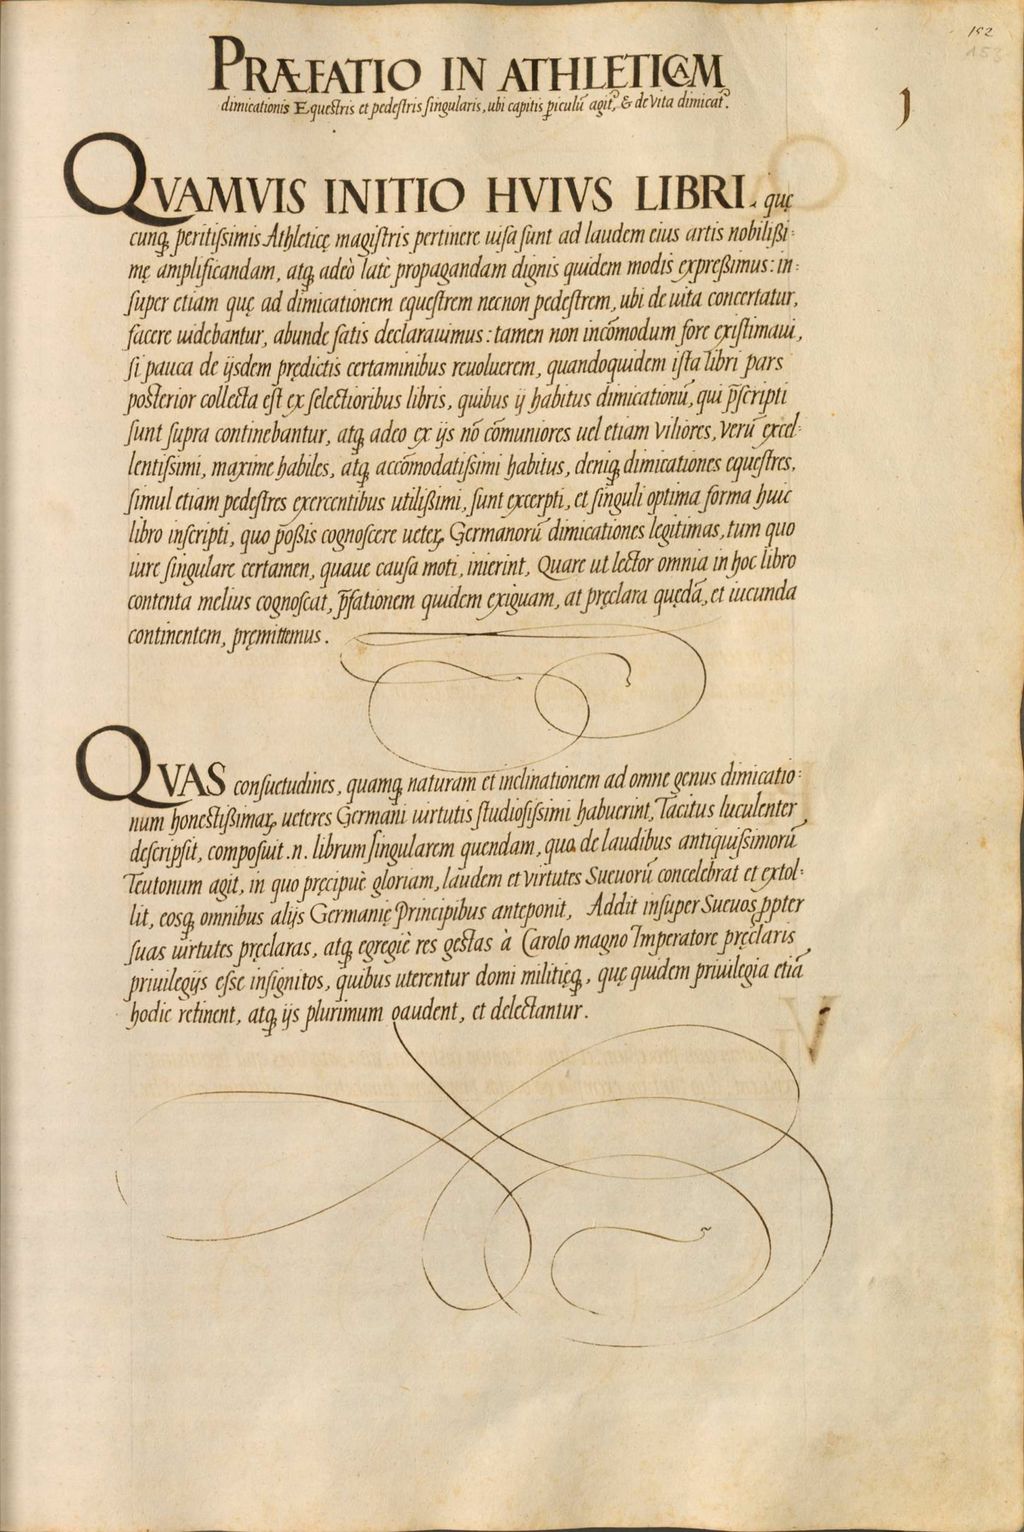 152
153
PRÆFATIO IN ATHLETICAM
dimicationis Equestris et pedestris singularis, ubi capitis p̱iculũ agit᷒, & de vita dimicat᷒.
1
QVAMVIS INITIO HVIVS LIBRI. quę
cunq̨ peritißimis Athleticę magistris pertinere uisa sunt ad laudem eius artis nobilißi:
mę amplificandam, atq̨ adeò latè propagandam dignis quidem modis expreßimus: in:
super etiam quę ad dimicationem equestrem necnon pedestrem, ubi de uita concertatur,
facere uidebantur, abunde satis declarauimus: tamen non incõmodum fore existimaui,
si pauca de ijsdem prędictis certaminibus reuoluerem, quandoquidem ista libri pars
posterior collecta est ex selectioribus libris, quibus ij habitus dimicationũ, qui p̃scripti
sunt supra continebantur, atq̨ adeo ex ijs nõ cõmuniores uel etiam viliores, verũ excel:
lentissimi, maxime habiles, atq̨ accõmodatissimi habitus, deniq̨ dimicationes equestres,
simul etiam pedestres exercentibus utilißimi, sunt excerpti, et singuli optima forma huic
libro inscripti, quo poßis cognoscere ueteꝝ Germanorũ dimicationes legitimas, tum quo
iure singulare certamen, quaue causa moti, inierint, Quare ut lector omnia in hoc libro
contenta melius cognoscat, p̃fationem quidem exiguam, at pręclara quędã, et iucunda
continentem, pręmittemus.
QVAS consuetudines, quamq̨ naturam et inclinationem ad omne genus dimicatio:
num honestißimaꝝ ueteres Germani uirtutis studiosissimi habuerint, Tacitus luculenter
descripsit, composuit .n. librum singularem quendam, quo de laudibus antiquissimorũ
Teutonum agit, in quo pręcipuè gloriam, laudem et virtutes Sueuorũ concelebrat et extol:
lit, eosq̨ omnibus alijs Germanię Principibus anteponit, Addit insuper Sueuos ꝓpter
suas uirtutes pręclaras, atq̨ egregiè res gestas à Carolo magno Imperatore pręclaris
priuilegijs esse insignitos, quibus uterentur domi militięq̨, quę quidem priuilegia etiã
hodie retinent, atq̨ ijs plurimum gaudent, et delectantur.